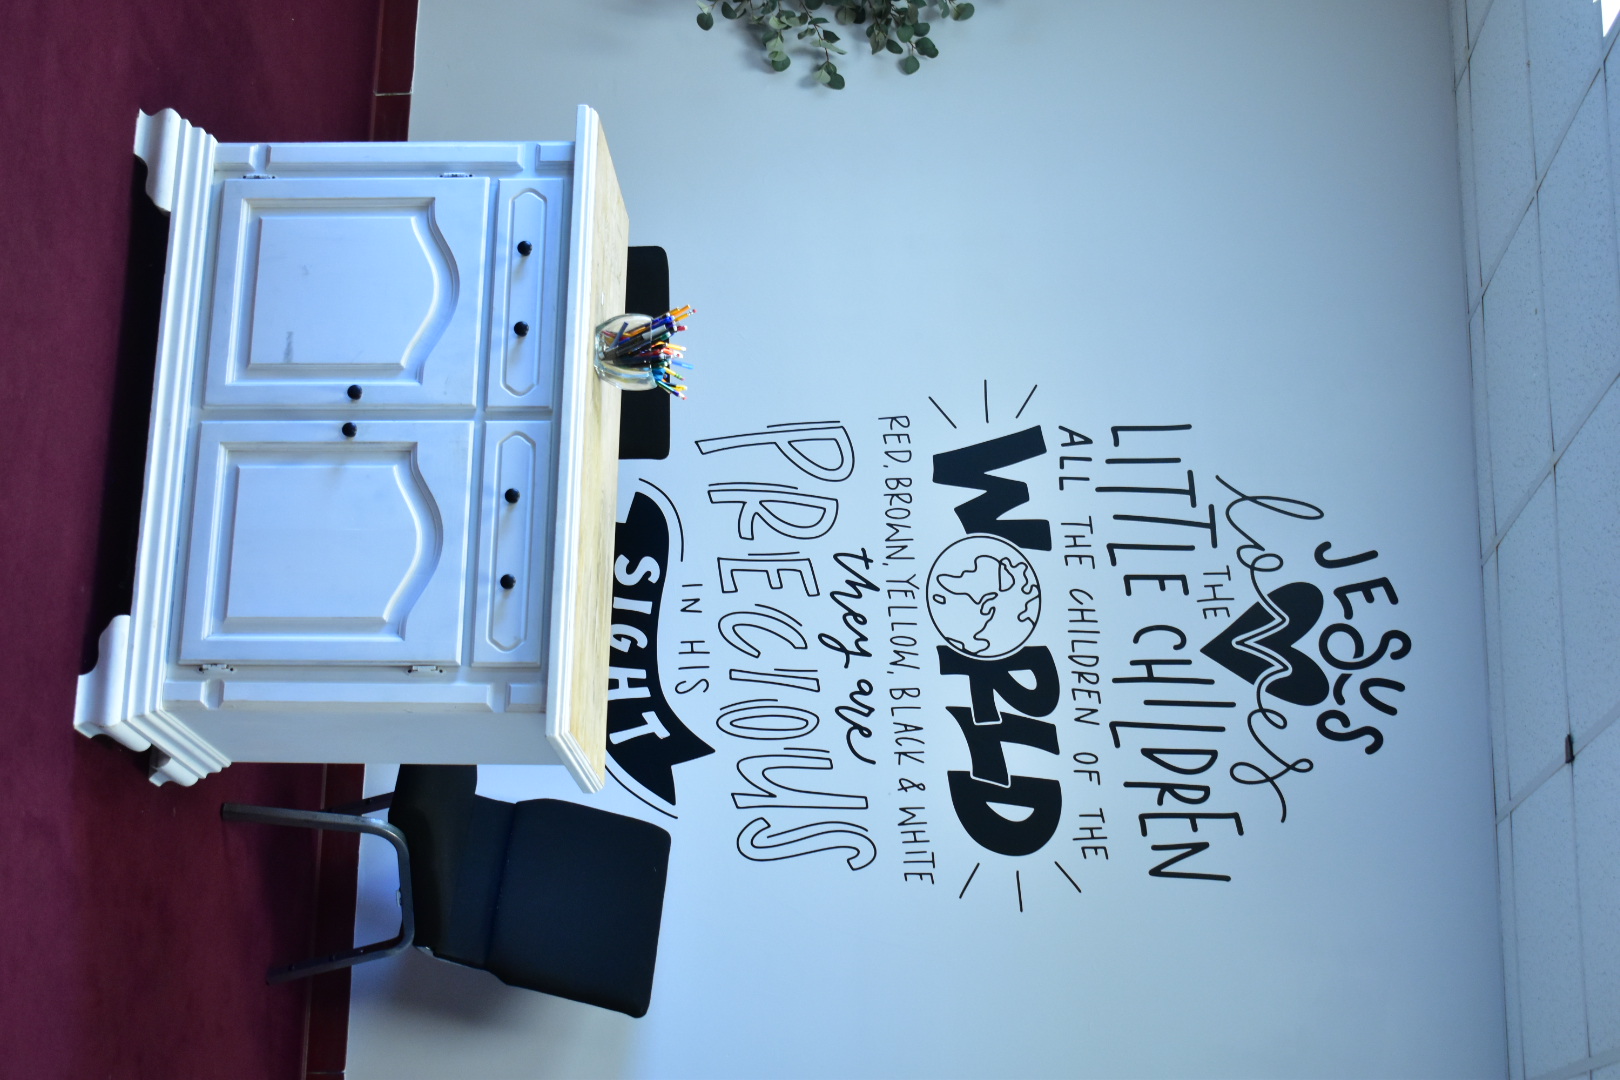 JESUS
loves
THE
LITTLE CHILDREN
ALL THE CHILDREN OF THE
WORLD
RED, BROWN, YELLOW, BLACK & WHITE
they are
PRECIOUS
IN HIS
SIGHT